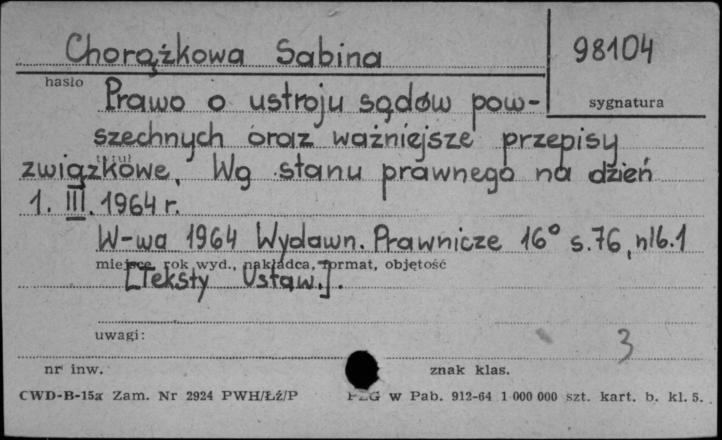 Chorążkowa Sabina
98104
hasło
sygnatura
Prawo o ustroju sądów pow-
szechnych oraz ważniejsze przepisy
związkowe, Wg stanu prawnego na dzień
1. III. 1964 r.
W-wa 1964 Wydawn. Prawnicze 16° s. 76, nlb. 1
miejsce, rok wyd., nakładca, format, objętość
[Teksty Ustaw.].
uwagi:
3
nr inw.
znak klas.
CWD-B-15a Zam. Nr 2924 PWH/Łź/P
PZG w Pab. 912-64 1 000 000 szt. kart. b. kl. 5.